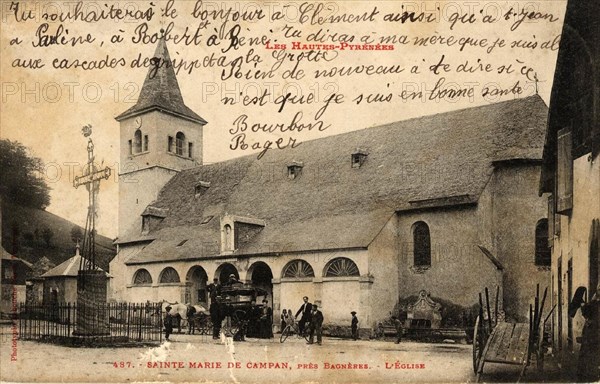 Tu souhaiteras le bonjour à Clément ainsi qu'a t-Jean
LES HAUTES-PYRÉNÉES
à Robert à René. Tu diras à ma mère que je suis allé
aux cascades de et à la Grotte
Rien de nouveau à te dire si ce
n'est que je suis en bonne santé
Bourbon
Roger
487. - SAINTE MARIE DE CAMPAN, PRÈS BAGNÈRES. - L'ÉGLISE